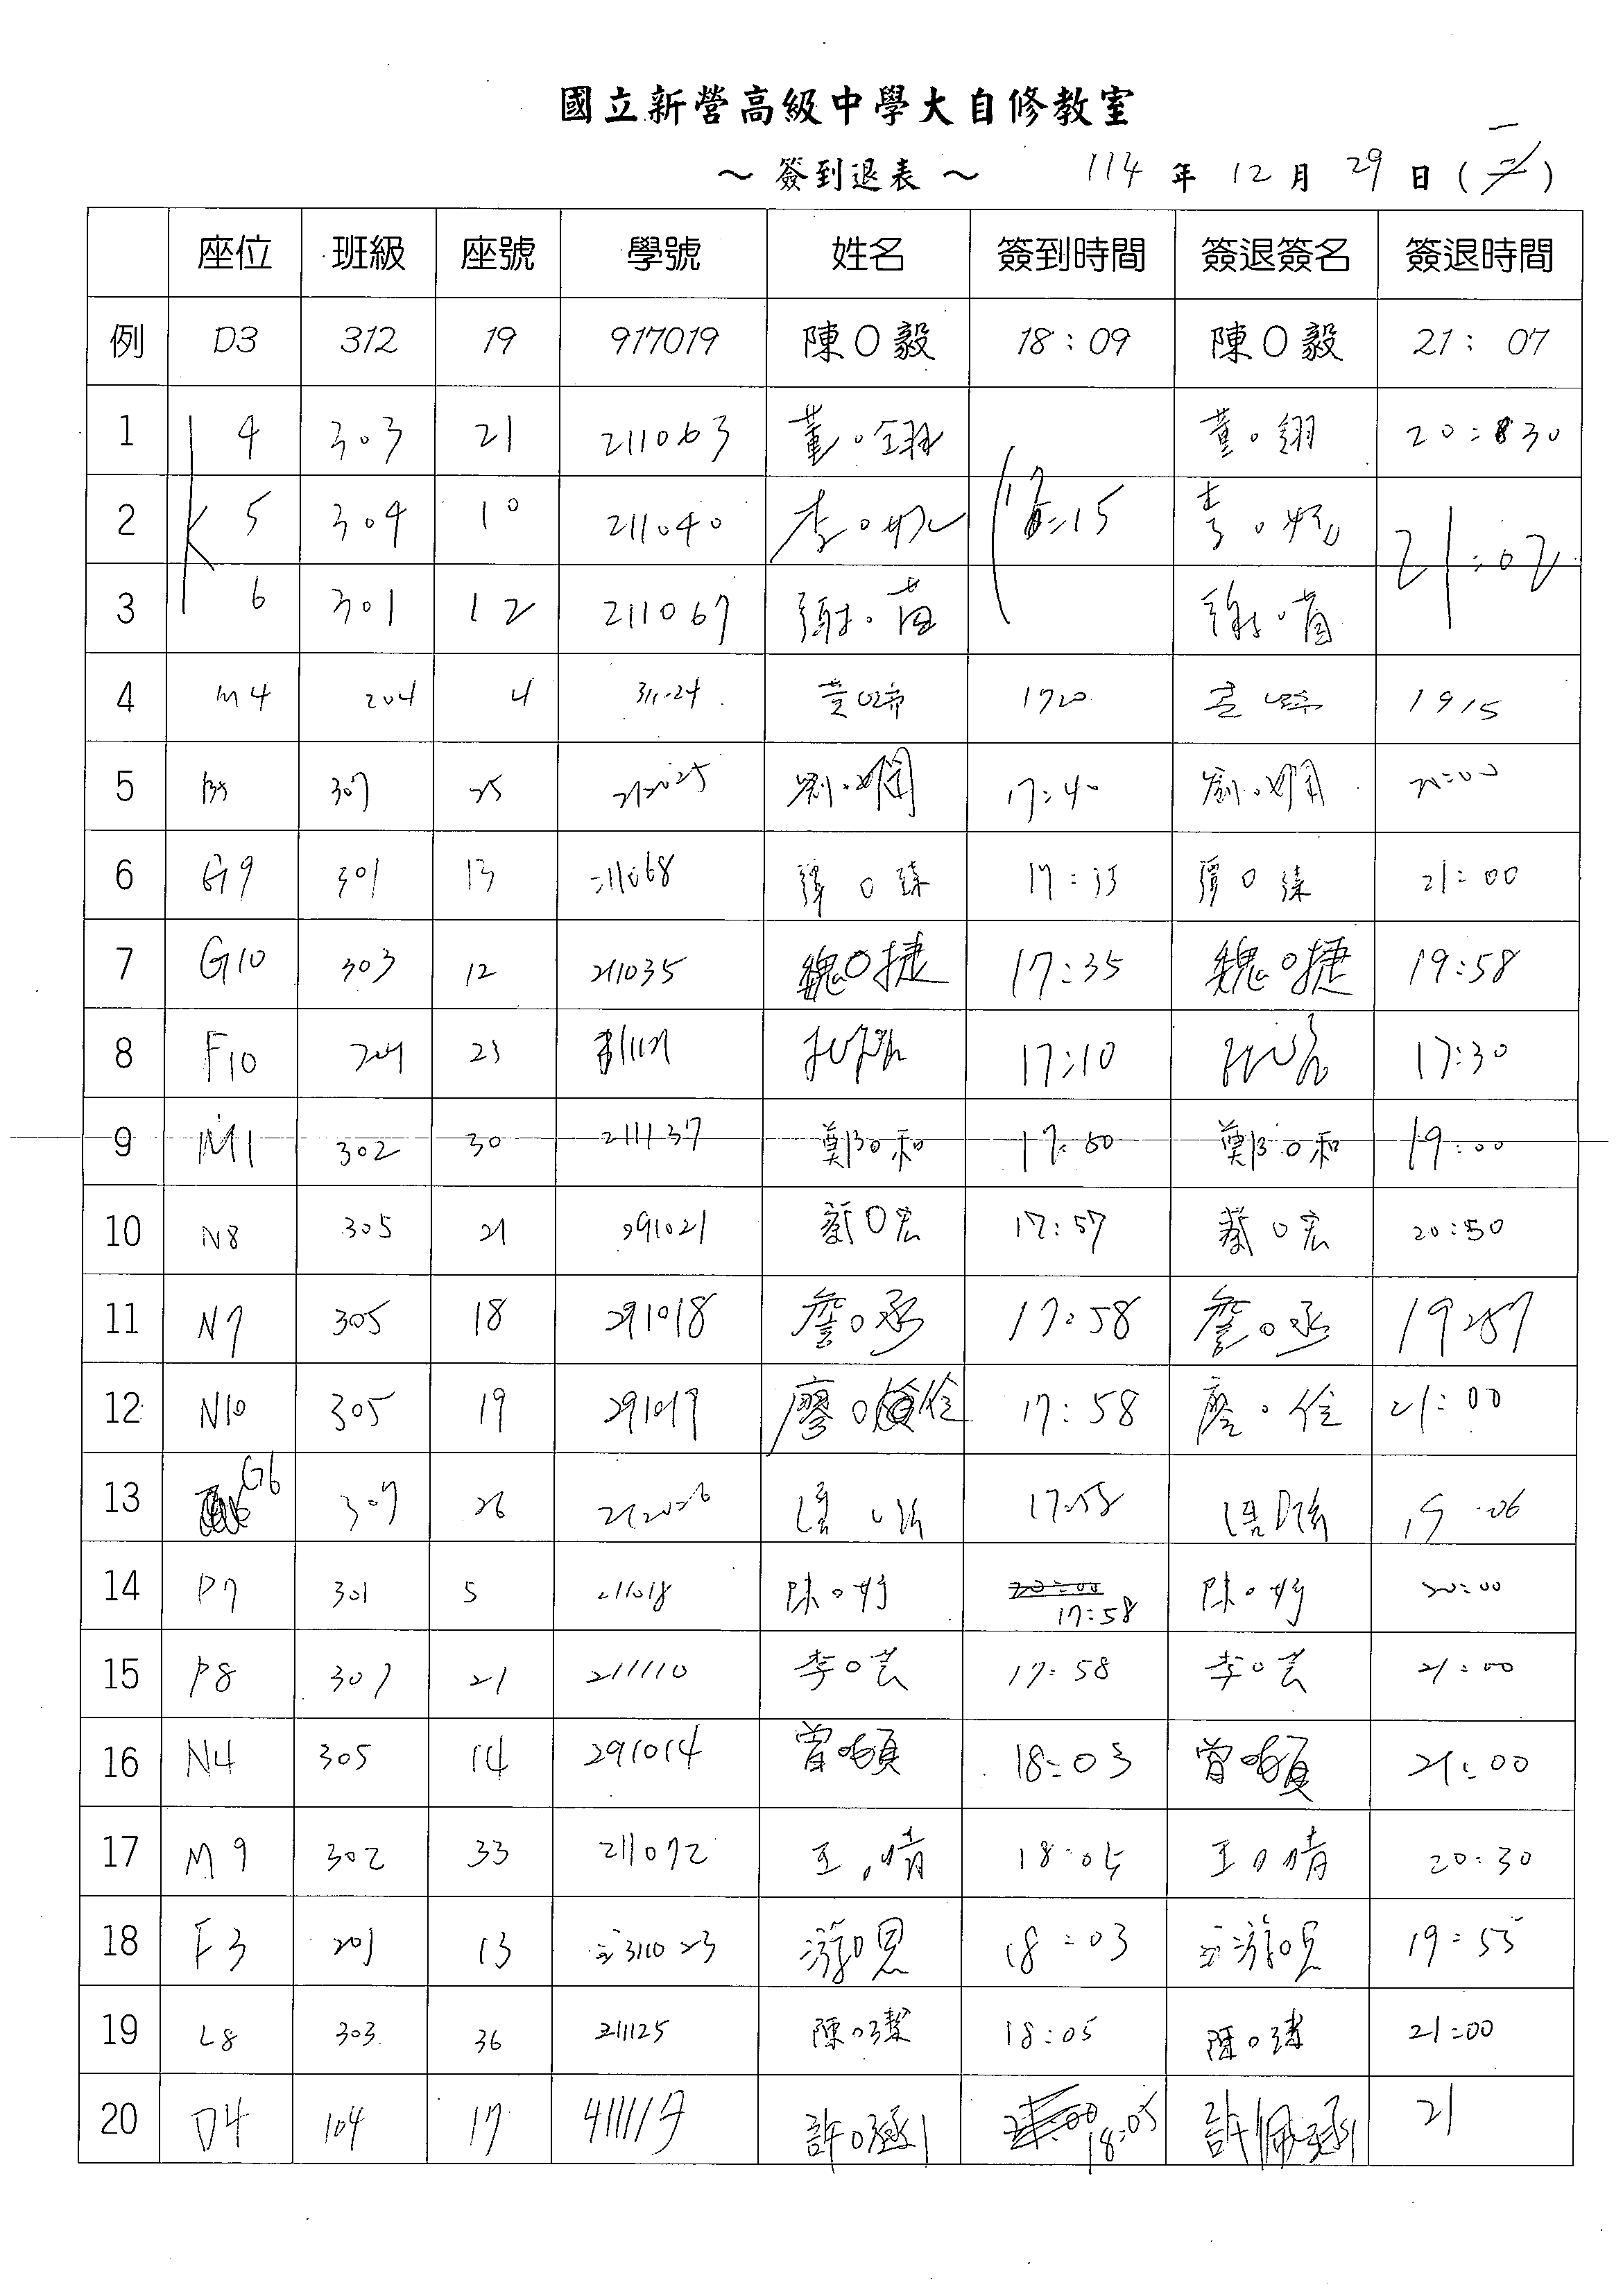 國立新營高級中學大自修教室
～ 簽到退表 ～ 114 年 12 月 29 日 ( 一 )
座位 班級 座號 學號 姓名 簽到時間 簽退簽名 簽退時間
例 D3 312 19 917019 陳O毅 18:09 陳O毅 21:07
1 K 4 303 21 211063 董O翊 17:15 董O翊 20:30
2 5 304 10 211040 李O 李O 21:02
3 6 301 12 211067 謝O 謝O
4 M4 204 4 黃O 1720 1915
5 307 25 劉O嫻 17:40 劉O嫻 21:00
6 G9 301 13 211068 O 17:35 O 21:00
7 G10 303 12 211035 魏O捷 17:35 魏O捷 19:58
8 F10 204 23 17:10 17:30
9 M1 302 30 211137 鄭O和 鄭O和 19:00
10 N8 305 21 291021 蔡O宏 17:57 蔡O宏 20:50
11 N7 305 18 291018 詹O丞 17:58 詹O丞 19:57
12 N10 305 19 291019 廖O佺 17:58 廖O佺 21:00
13 G6 307 26 212026 17:58 19:06
14 P7 301 5 211018 陳O妤 20:00 17:58 陳O妤 20:00
15 P8 307 21 211110 李O芸 17:58 李O芸 21:00
16 N4 305 14 291014 曾O碩 18:03 曾O碩 21:00
17 M9 302 33 211072 王O晴 18:05 王O晴 20:30
18 F3 201 13 311023 游O恩 18:03 游O恩 19:55
19 L8 303 36 211125 陳O潔 18:05 陳O潔 21:00
20 D4 104 17 許O 18:05 許 21